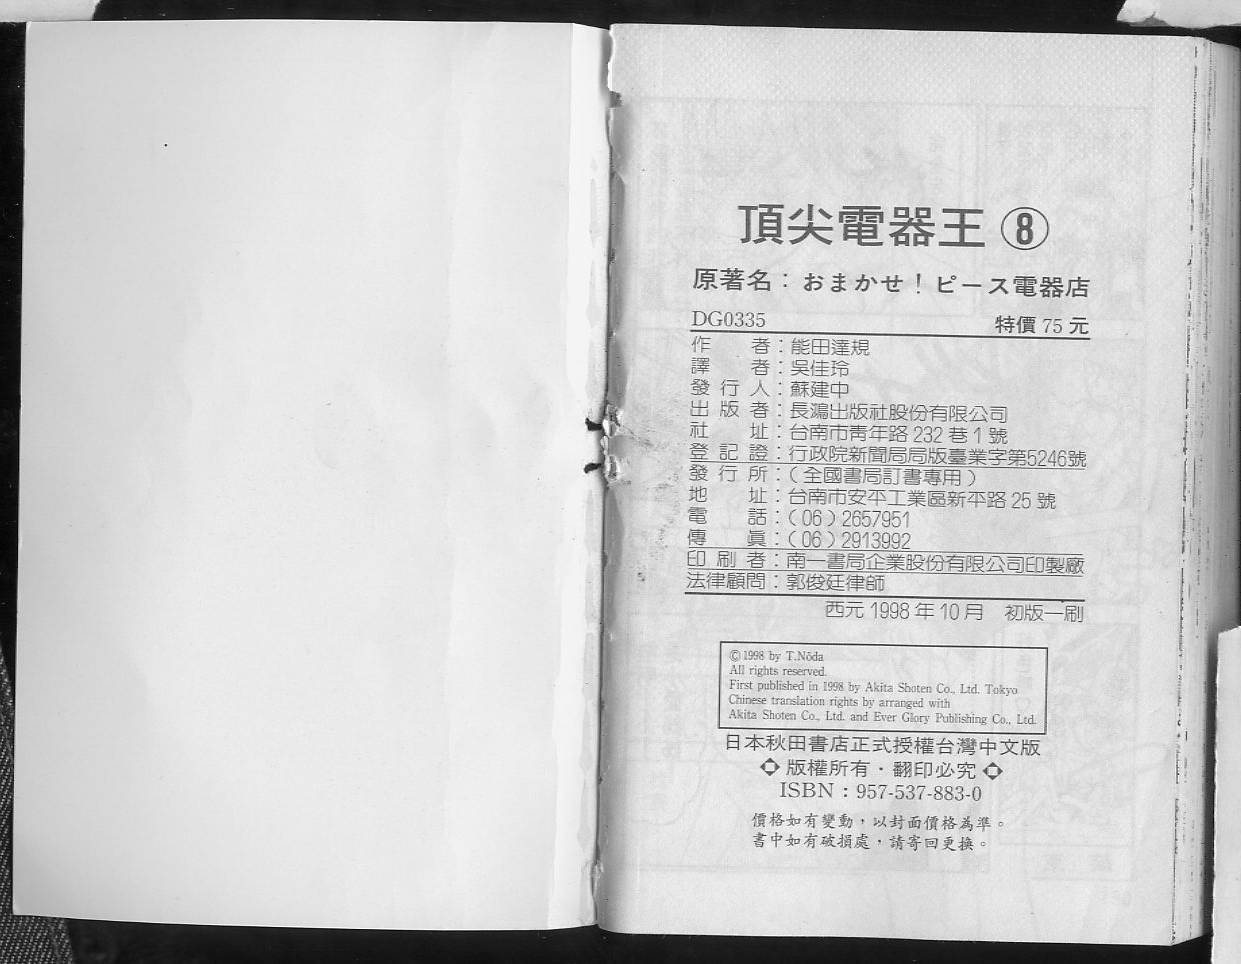 頂尖電器王⑧
原著名：おまかせ！ピース電器店
DG0335 特價 75 元
作者：能田達規
譯者：吳佳玲
發行人：蘇建中
出版者：長鴻出版社股份有限公司
社址：台南市青年路 232 巷 1 號
登記證：行政院新聞局局版臺業字第5246號
發行所：（全國書局訂書專用）
地址：台南市安平工業區新平路 25 號
電話：（06）2657951
傳眞：（06）2913992
印刷者：南一書局企業股份有限公司印製廠
法律顧問：郭俊廷律師
西元 1998 年 10 月 初版一刷
© 1998 by T.Nōda
All rights reserved.
First published in 1998 by Akita Shoten Co., Ltd. Tokyo
Chinese translation rights by arranged with
Akita Shoten Co., Ltd. and Ever Glory Publishing Co., Ltd.
日本秋田書店正式授權台灣中文版
版權所有・翻印必究
ISBN：957-537-883-0
價格如有變動，以封面價格為準。
書中如有破損處，請寄回更換。